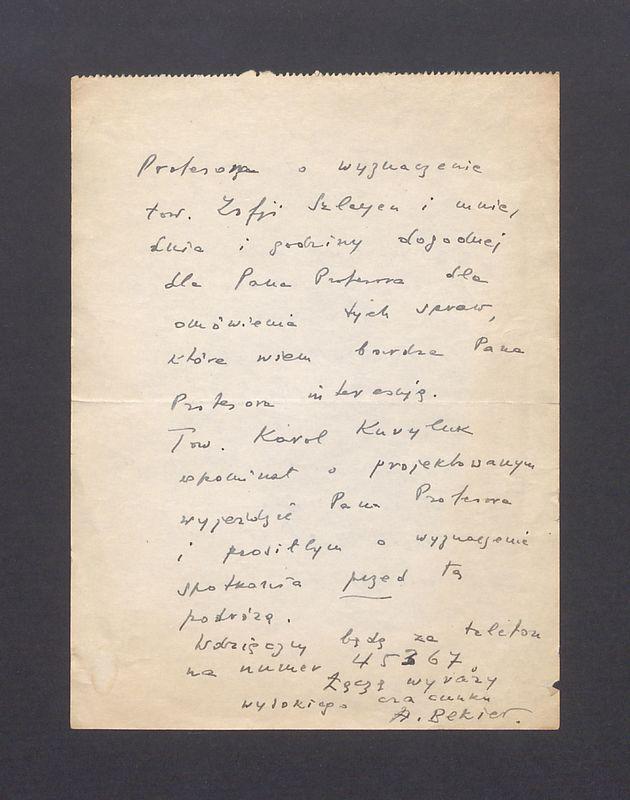 Profesora o wyznaczenie
tow. Zofji Szleyen i mnie,
dnia i godziny dogodnej
dla Pana Profesora dla
omówienia tych spraw,
które wiem bardzo Pana
Profesora interesują.
Tow. Karol Kuryluk
wspominał o projektowanym
wyjeździe Pana Profesora
i prosiłbym o wyznaczenie
spotkania przed tą
podróżą.
Wdzięczny będę za telefon
na numer 45367
Łączę wyrazy
wysokiego szacunku
A. Bekier.